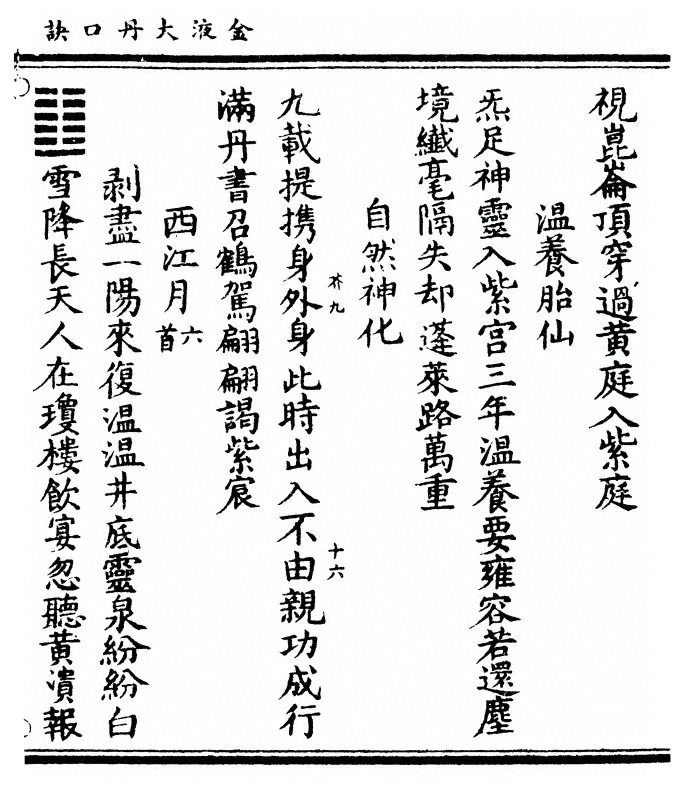 金液大丹口訣
視崑崙頂穿過黃庭入紫庭
溫養胎仙
炁足神靈入紫宮三年溫養要雍容若還塵
境纖毫隔失却蓬萊路萬重
自然神化
九載提携身外身此時出入不由親功成行
滿丹書召鶴駕翩翩謁紫宸
芥九
十六
西江月六首
剥盡一陽來復溫溫井底靈泉紛紛白
䷗雪降長天人在瓊樓飲宴忽聽黃潰報